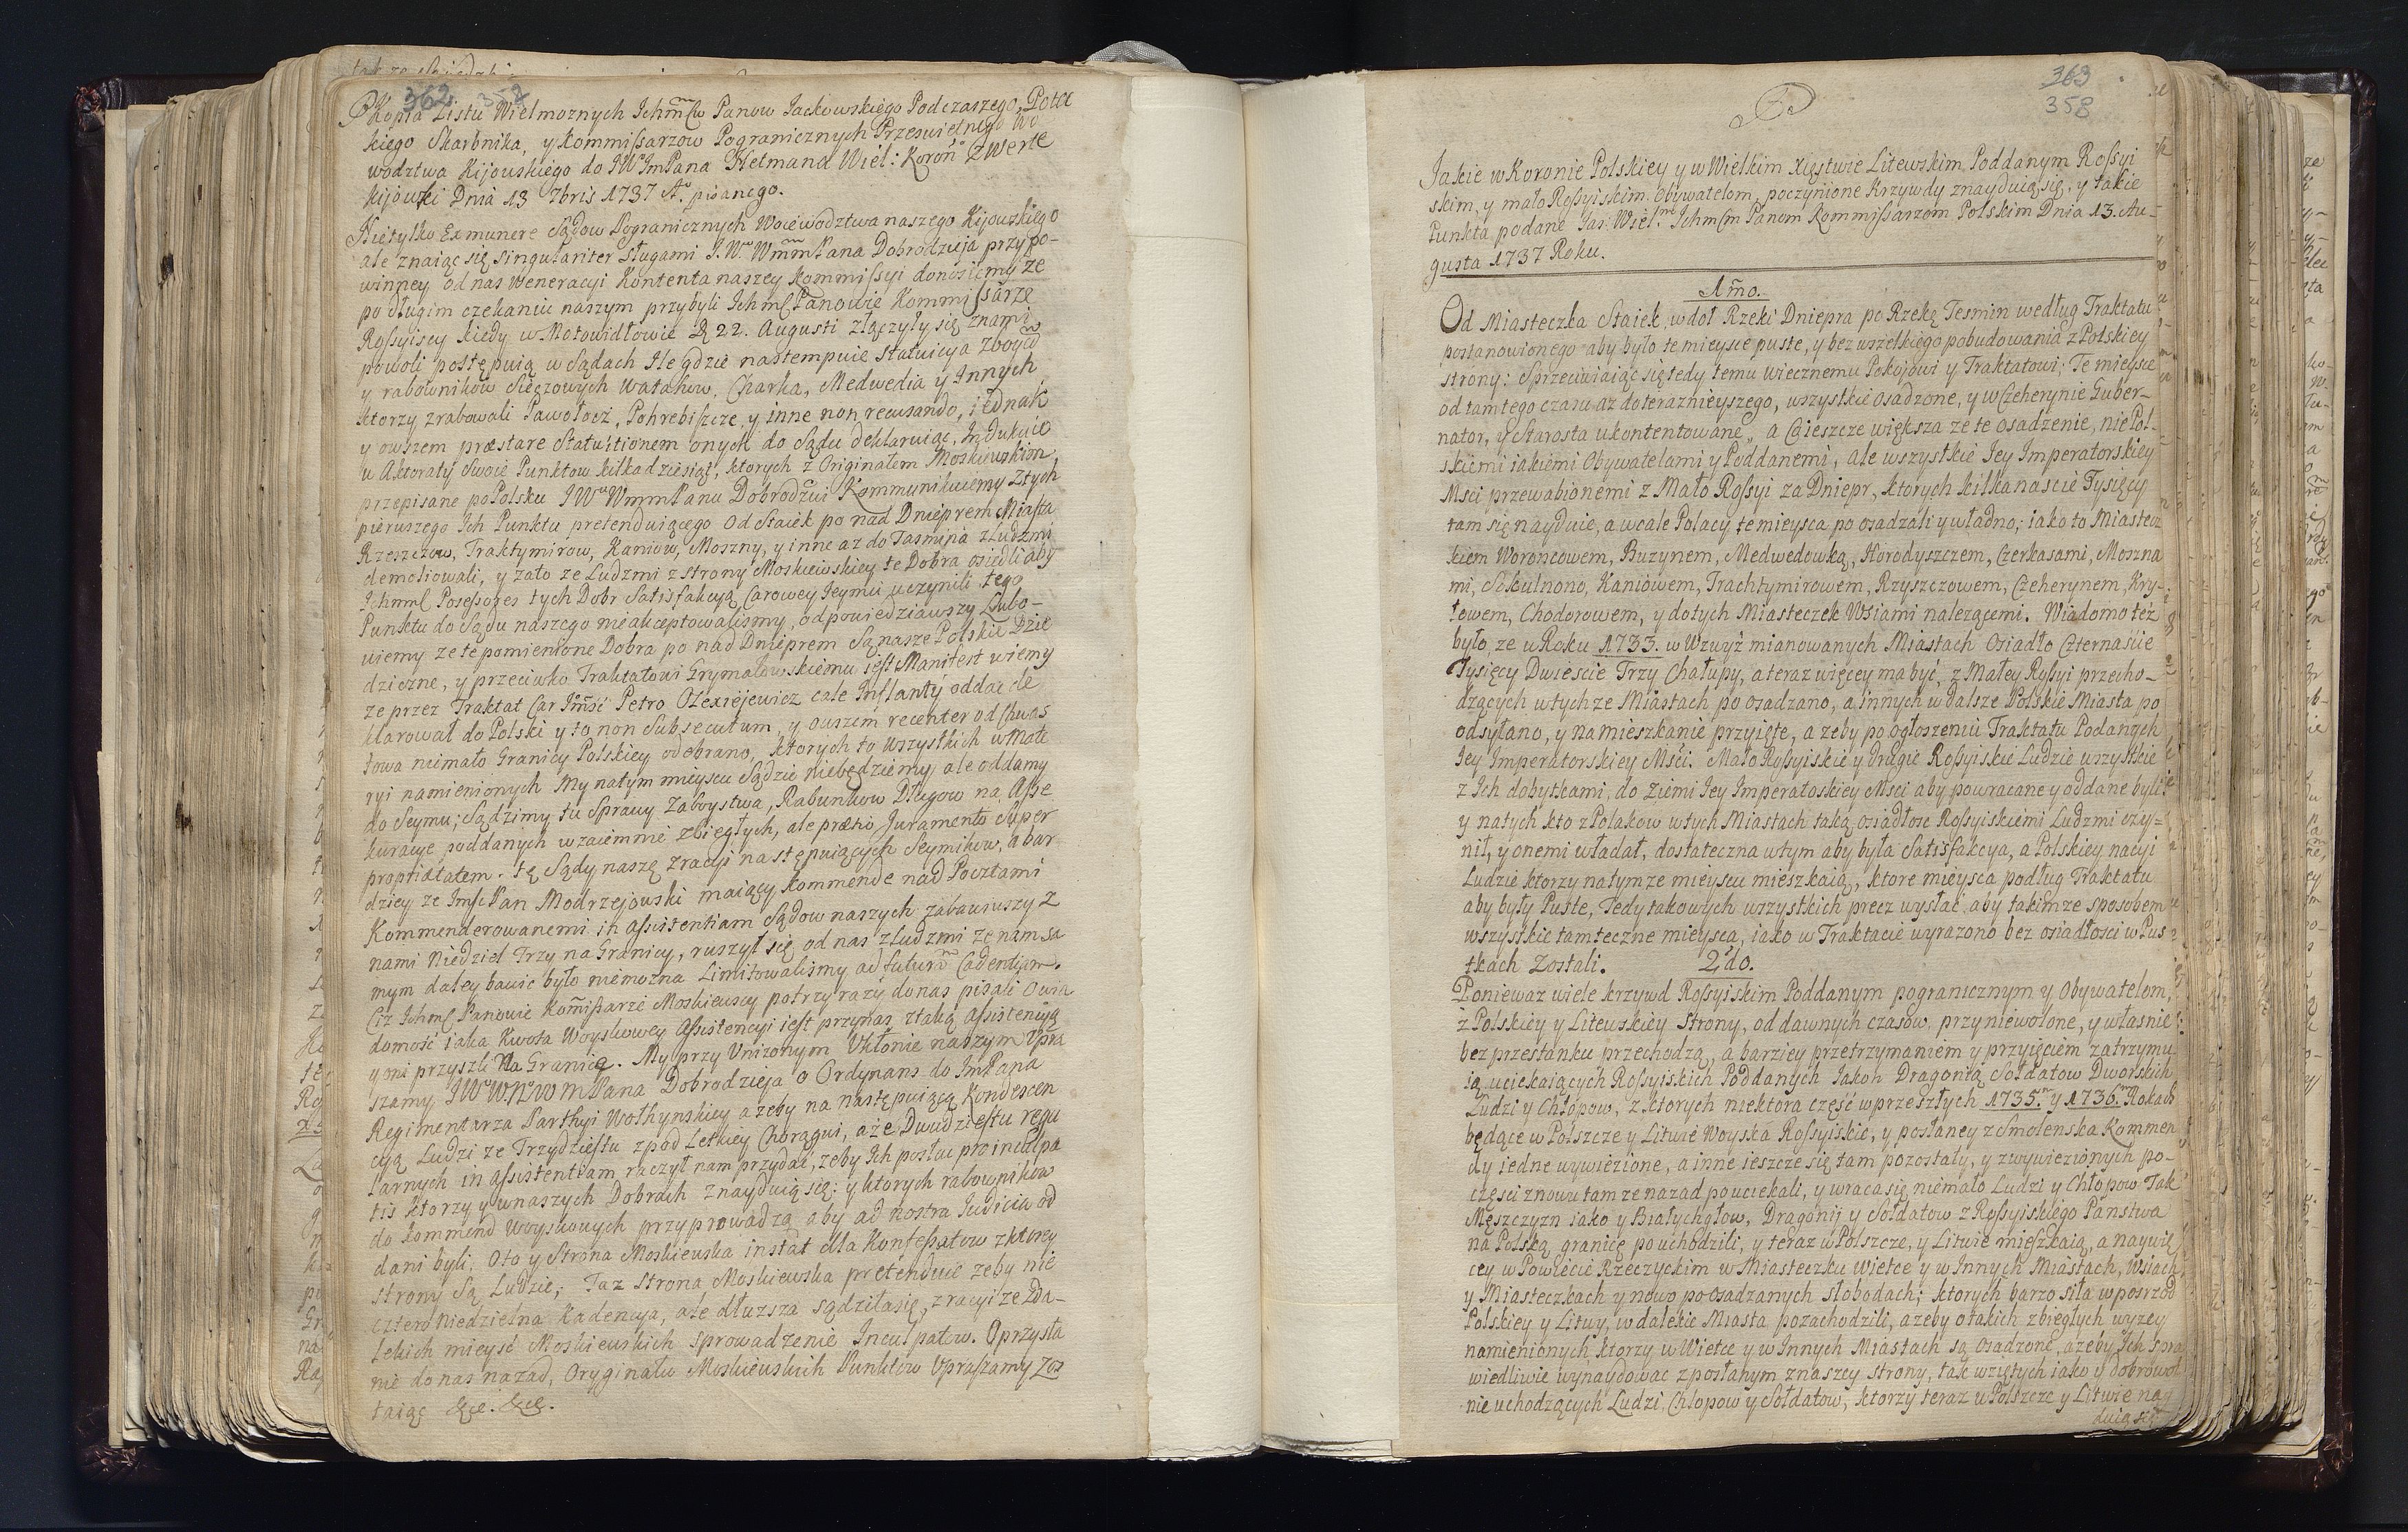 362 357
Kopia Listu Wielmoznych Ichmćw Panow Jackowskiego Podczaszego, Potoc
kiego Skarbnika, y Kommissarzow Pogranicznych Przeswietnego Wo
wodztwa Kijowskiego do JWImPana Hetmana Wiel: Koron Zwerte
Kijowki Dnia 13 7bris 1737 Ao. pisanego.
Nietylko Ex munere Sądow Pogranicznych Woiewodztwa naszego Kijowskiego
ale znaiąc się singulariter Sługami J.W. WmmPana Dobrodzieja przy po-
winney od nas Weneracyi Kontenta naszey Kommissyi donosiemy że
po długim czekaniu naszym przybyli Ichmć Panowie Kommissarze
Rossyiscy kiedy w Motowidłowie D 22. Augusti złączyły się znami
powoli postępuią w Sądach Ile gdzie nastempuie statuicya Zboycow
y rabownikow Sieczowych Watahow, Charka, Medwedia y Innych
ktorzy zrabowali Pawołocz, Pohrebiszcze, y inne non recusando, iednak
y owszem præstare Statuitionem onych do Sądu deklaruiąc, Indukuie
u Aktoraty Swoie Punktow kilkadziesiąt, ktorych z Originałem Moskiewskiem
przepisane po Polsku JWWmmPanu Dobrodzui Kommunikuiemy Z tych
pierwszego Ich Punktu pretenduiącego Od Staiek po nad Dnieprem Miasta
Rzeszczow, Traktymirow, Kaniow, Moszny, y inne az do Tasmina z Ludzmi
demoliowali, y zato ze Ludzmi z strony Moskiewskiey te Dobra osiedli aby
Ichmmć Possessores tych Dobr Satisfakcyą Carowey Jeymci uczynili tego
Punktu do Sądu naszego nieakceptowalismy, odpowiedziawszy Lubo-
wiemy ze te pomienione Dobra po nad Dnieprem Są nasze Polskie Dzie
dziczne, y przeciwko Traktatowi Grymałowskiemu iest Manifest wiemy
ze przez Traktat Car Imść Petro Olexiejewicz całe Inflanty oddac de
klarował do Polski y to non Subsecutum, y owszem recenter od Chwas
towa niemało Granicy Polskiey odebrano, ktorych to Wszystkich w Mate
ryi namienionych My na tym mieyscu Sądzic niebędziemy, ale oddamy
do Seymu; Sądzimy tu Sprawy Zaboystwa, Rabunkow Długow na Asse
kuracye poddanych w zaiemnie zbiegłych, ale prævio Juramento Super
proprietatem. Tę Sądy naszę z racyi następuiących Seymikow, a bar
dziey ze Imsc Pan Modrzejowski maiący kommendę nad Pocztami
Kommenderowanemi in Assistentiam Sądow naszych zabawiwszy Z
nami Niedziel Trzy na Granicy, ruszył się od nas z Ludzmi ze nam sa
mym daley bawic było niemozna Limitowalismy ad futuram Cadentiam.
Ciz Ichmć Panowie Kommissarze Moskiewscy po trzy razy do nas pisali O wia
domość iaka Kwota Woyskowey Assistencyi iest przynas z taką Assistencyą
y oni przyszli Na Granicę. My przy Unizonym Ukłonie naszym Upra
szamy JWW.N.WmPana Dobrodzieja o Ordynans do ImPana
Regimentarza Parthyi Wołhynskiey azeby na następuiącą Kondescen
cyą Ludzi ze Trzydziestu z pod Letkiey Chorągwi, a że Dwudziestu regu
larnych in Assistentiam raczył nam przydać, zeby Ich posłac pro inculpa
tis ktorzy y w naszych Dobrach znayduią się; y ktorych rabownikow
do Kommend Woyskowych przyprowadzą aby ad nostra Iudicia od
dani byli, Oto y Strona Moskiewska instat dla Konfessatow z ktorey
strony Są Ludzie; Taz Strona Moskiewska pretenduie zeby nie
cztero Niedzielna Kadencya, ale dłuzsza sądziłasię, z racyi ze Z da-
lekich mieysć Moskiewskich sprowadzenie Inculpatow. O przysła
nie do nas nazad, Oryginału Moskiewskich Punktow Upraszamy Zos
taiąc &c. &c.
363
358
Jakie w Koronie Polskiey y w Wielkim Xięstwie Litewskim Poddanym Rossyi
skim, y mało Rossyiskim Obywatelom poczynione Krzywdy znayduią się, y takie
Punkta podane Jas: Wiel: Ichmćm Panom Kommissarzom Polskim Dnia 13. Au-
gusta 1737 Roku.
1mo.
Od Miasteczka Staiek, w doł Rzeki Dniepra po Rzekę Tesmin według Traktatu
postanowionego aby było te mieysce puste, y bez wszelkiego pobudowania z Polskiey
strony: Sprzeciwiaiąc się tedy temu wiecznemu Pokojowi y Traktatowi; Te mieysce
od tamtego czasu aż do teraznieyszego, wszystkie osadzone, y w Czeherynie Guber-
nator, y Starosta ukontentowane, a Co ieszcze większa ze te osadzenie, nie Pol-
skiemi iakiemi Obywatelami y Poddanemi, ale wszystkie Jey Imperatorskiey
Mści przewabionemi z Mało Rossyi za Dniepr, ktorych kilkanascie Tysięcy
tam się nayduie, a wcale Polacy te mieysca po osadzali y władno; iako to Miastecz
kiem Woroncowem, Buzynem, Medwedowką, Horodyszczem, Czerkasami, Moszna
mi, Sokulnono, Kaniowem, Trachtymirowem, Rzyszczowem, Czeherynem, Kry-
łowem, Chodorowem, y do tych Miasteczek Wsiami nalezącemi. Wiadomo też
było, ze w Roku 1733. w Wzwyż mianowanych Miastach Osiadło Czternaście
Tysięcy Dwieście Trzy Chałupy, a teraz więcey ma być, z Małey Rossyi przecho-
dzących w tychze Miastach po osadzano, a innych w dalsze Polskie Miasta po
odsyłano, y na mieszkanie przyięte, a zeby po ogłoszeniu Traktatu Podanych
Jey Imperatorskiey Mści. Mało Rossyiskie y Drugie Rossyiskie Ludzie wszystkie
z Ich dobytkami, do Ziemi Jey Imperatoskiey Mści aby powracane y oddane byli:
y na tych kto z Polakow w tych Miastach taką osiadłosc Rossyiskiemi Ludzmi czy-
nił, y onemi władał, dostateczna w tym aby była Satisfakcya, a Polskiey nacyi
Ludzie ktorzy na tymze mieyscu mieszkaią, ktore mieysca podług Traktatu
aby były Puste, Tedy takowych wszystkich precz wysłac, aby takimze sposobem
wszystkie tamteczne mieysca, iako w Traktacie wyrazono bez osiadłosci w Pus
tkach Zostali. 2do.
Poniewaz wiele krzywd Rossyiskim Poddanym pogranicznym y Obywatelom,
z Polskiey y Litewskiey Strony, od dawnych czasow, przyniewolone, y własnie
bez przestanku przechodzą, a barziey przetrzymaniem y przyięciem zatrzymu
ią uciekaiących Rossyiskich Poddanych Jakoh Dragonią Sołdatow Dworskich
Ludzi y Chłopow, z ktorych niektora część w przeszłych 1735. y 1736. Rokach
będące w Polszcze y Litwie Woyska Rossyiskie, y posłaney z Smolenska Kommen
dy iedne wywiezione, a inne ieszcze się tam pozostały, y z wywiezionych po-
częsci znowu tam ze nazad pouciekali, y wraca się niemało Ludzi y Chłopow Tak
Męszczyzn iako y Białychgłow, Dragonij y Sołdatow z Rossyiskiego Panstwa
na Polską granicę po uchodzili, y teraz w Polszcze, y Litwie mieszkaią, a naywię
cey w Powiecie Rzeczyckim w Miasteczku Wietce y w Innych Miastach, Wsiach,
y Miasteczkach y nowo po osadzanych słobodach; ktorych barzo siła w posrzod
Polskiey y Litwy, w dalekie Miasta pozachodzili, azeby o takich zbiegłych wyzey
namienionych, ktorzy w Wietce y w Innych Miastach są osadzone, azeby Ich spra
wiedliwie wynaydowac z posłanym z naszey strony, tak wziętych iako y dobrowol
nie uchodzących Ludzi, Chłopow y Sołdatow, ktorzy teraz w Polszcze y Litwie nay
duią się